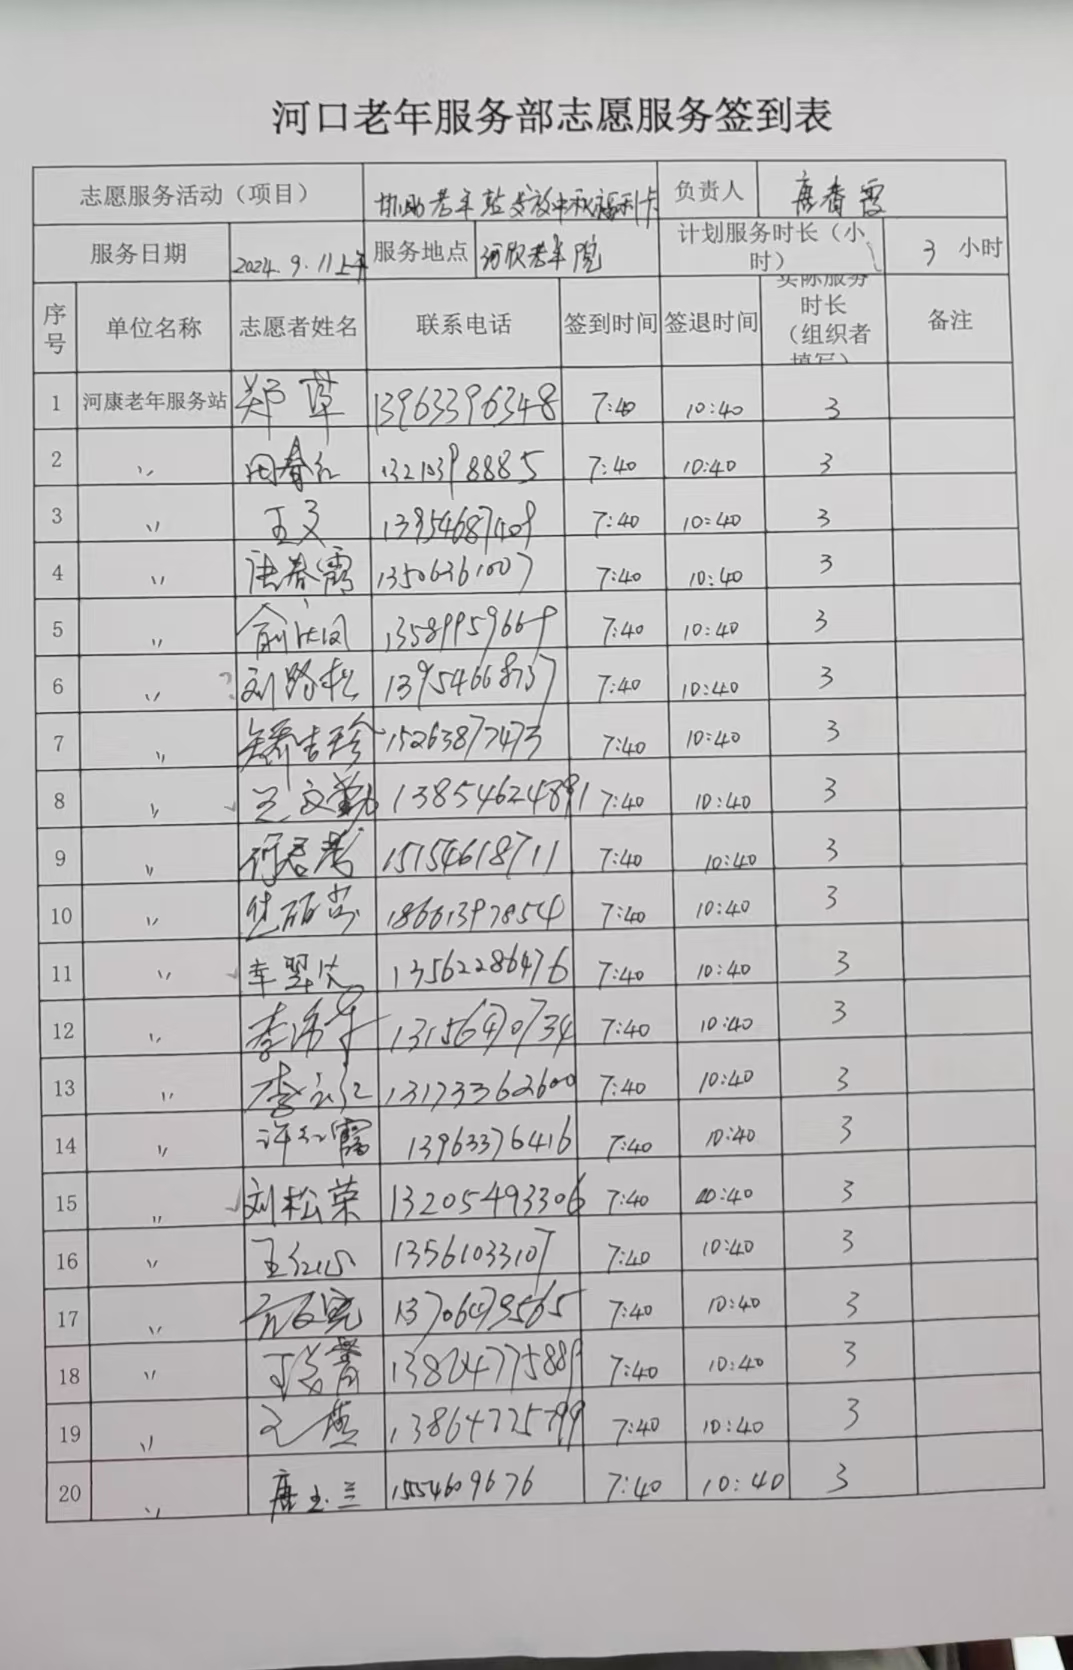 河口老年服务部志愿服务签到表
志愿服务活动（项目） 协助老年站发放中秋福利卡 负责人 唐春霞
服务日期 2024.9.11上午 服务地点 河欣老年院 计划服务时长（小时） 3 小时
序号 单位名称 志愿者姓名 联系电话 签到时间 签退时间 实际服务时长（组织者填写） 备注
1 河康老年服务站 郑萍 13963396348 7:40 10:40 3
2 〃 田春红 13210398885 7:40 10:40 3
3 〃 王文 13954687409 7:40 10:40 3
4 〃 唐春霞 13506361007 7:40 10:40 3
5 〃 俞 13589959669 7:40 10:40 3
6 〃 刘路松 13954668737 7:40 10:40 3
7 〃 矫吉珍 15263877473 7:40 10:40 3
8 〃 兰文勤 13854624891 7:40 10:40 3
9 〃 15154618711 7:40 10:40 3
10 〃 18661397854 7:40 10:40 3
11 〃 13562286476 7:40 10:40 3
12 〃 李 13156470734 7:40 10:40 3
13 〃 李 13173362600 7:40 10:40 3
14 〃 许红霞 13963376416 7:40 10:40 3
15 〃 刘松荣 13205493306 7:40 10:40 3
16 〃 王 13561033107 7:40 10:40 3
17 〃 13706473565 7:40 10:40 3
18 〃 7:40 10:40 3
19 〃 王燕 13864725799 7:40 10:40 3
20 〃 唐玉兰 1554609676 7:40 10:40 3